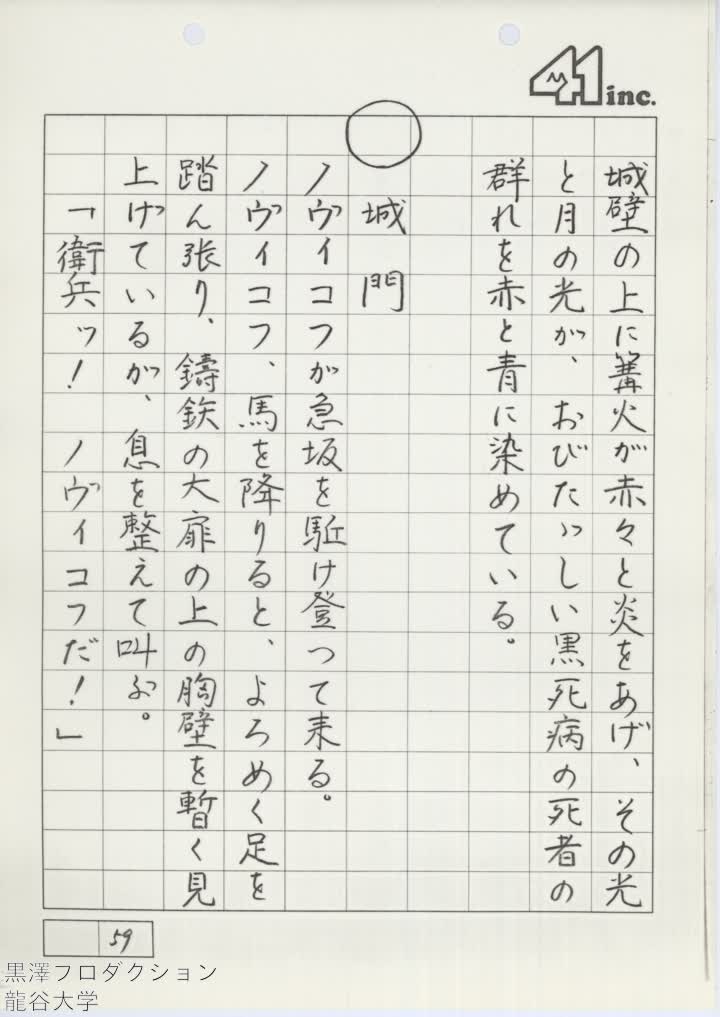 41 inc.
城壁の上に篝火が赤々と炎をあげ、その光
と月の光が、おびたゞしい黒死病の死者の
群れを赤と青に染めている。
○　城　門
ノヴィコフが急坂を駈け登って来る。
ノヴィコフ、馬を降りると、よろめく足を
踏ん張り、鋳鉄の大扉の上の胸壁を暫く見
上げているが、息を整えて叫ぶ。
「衛兵ッ！　ノヴィコフだ！」
59
黒澤プロダクション
龍谷大学